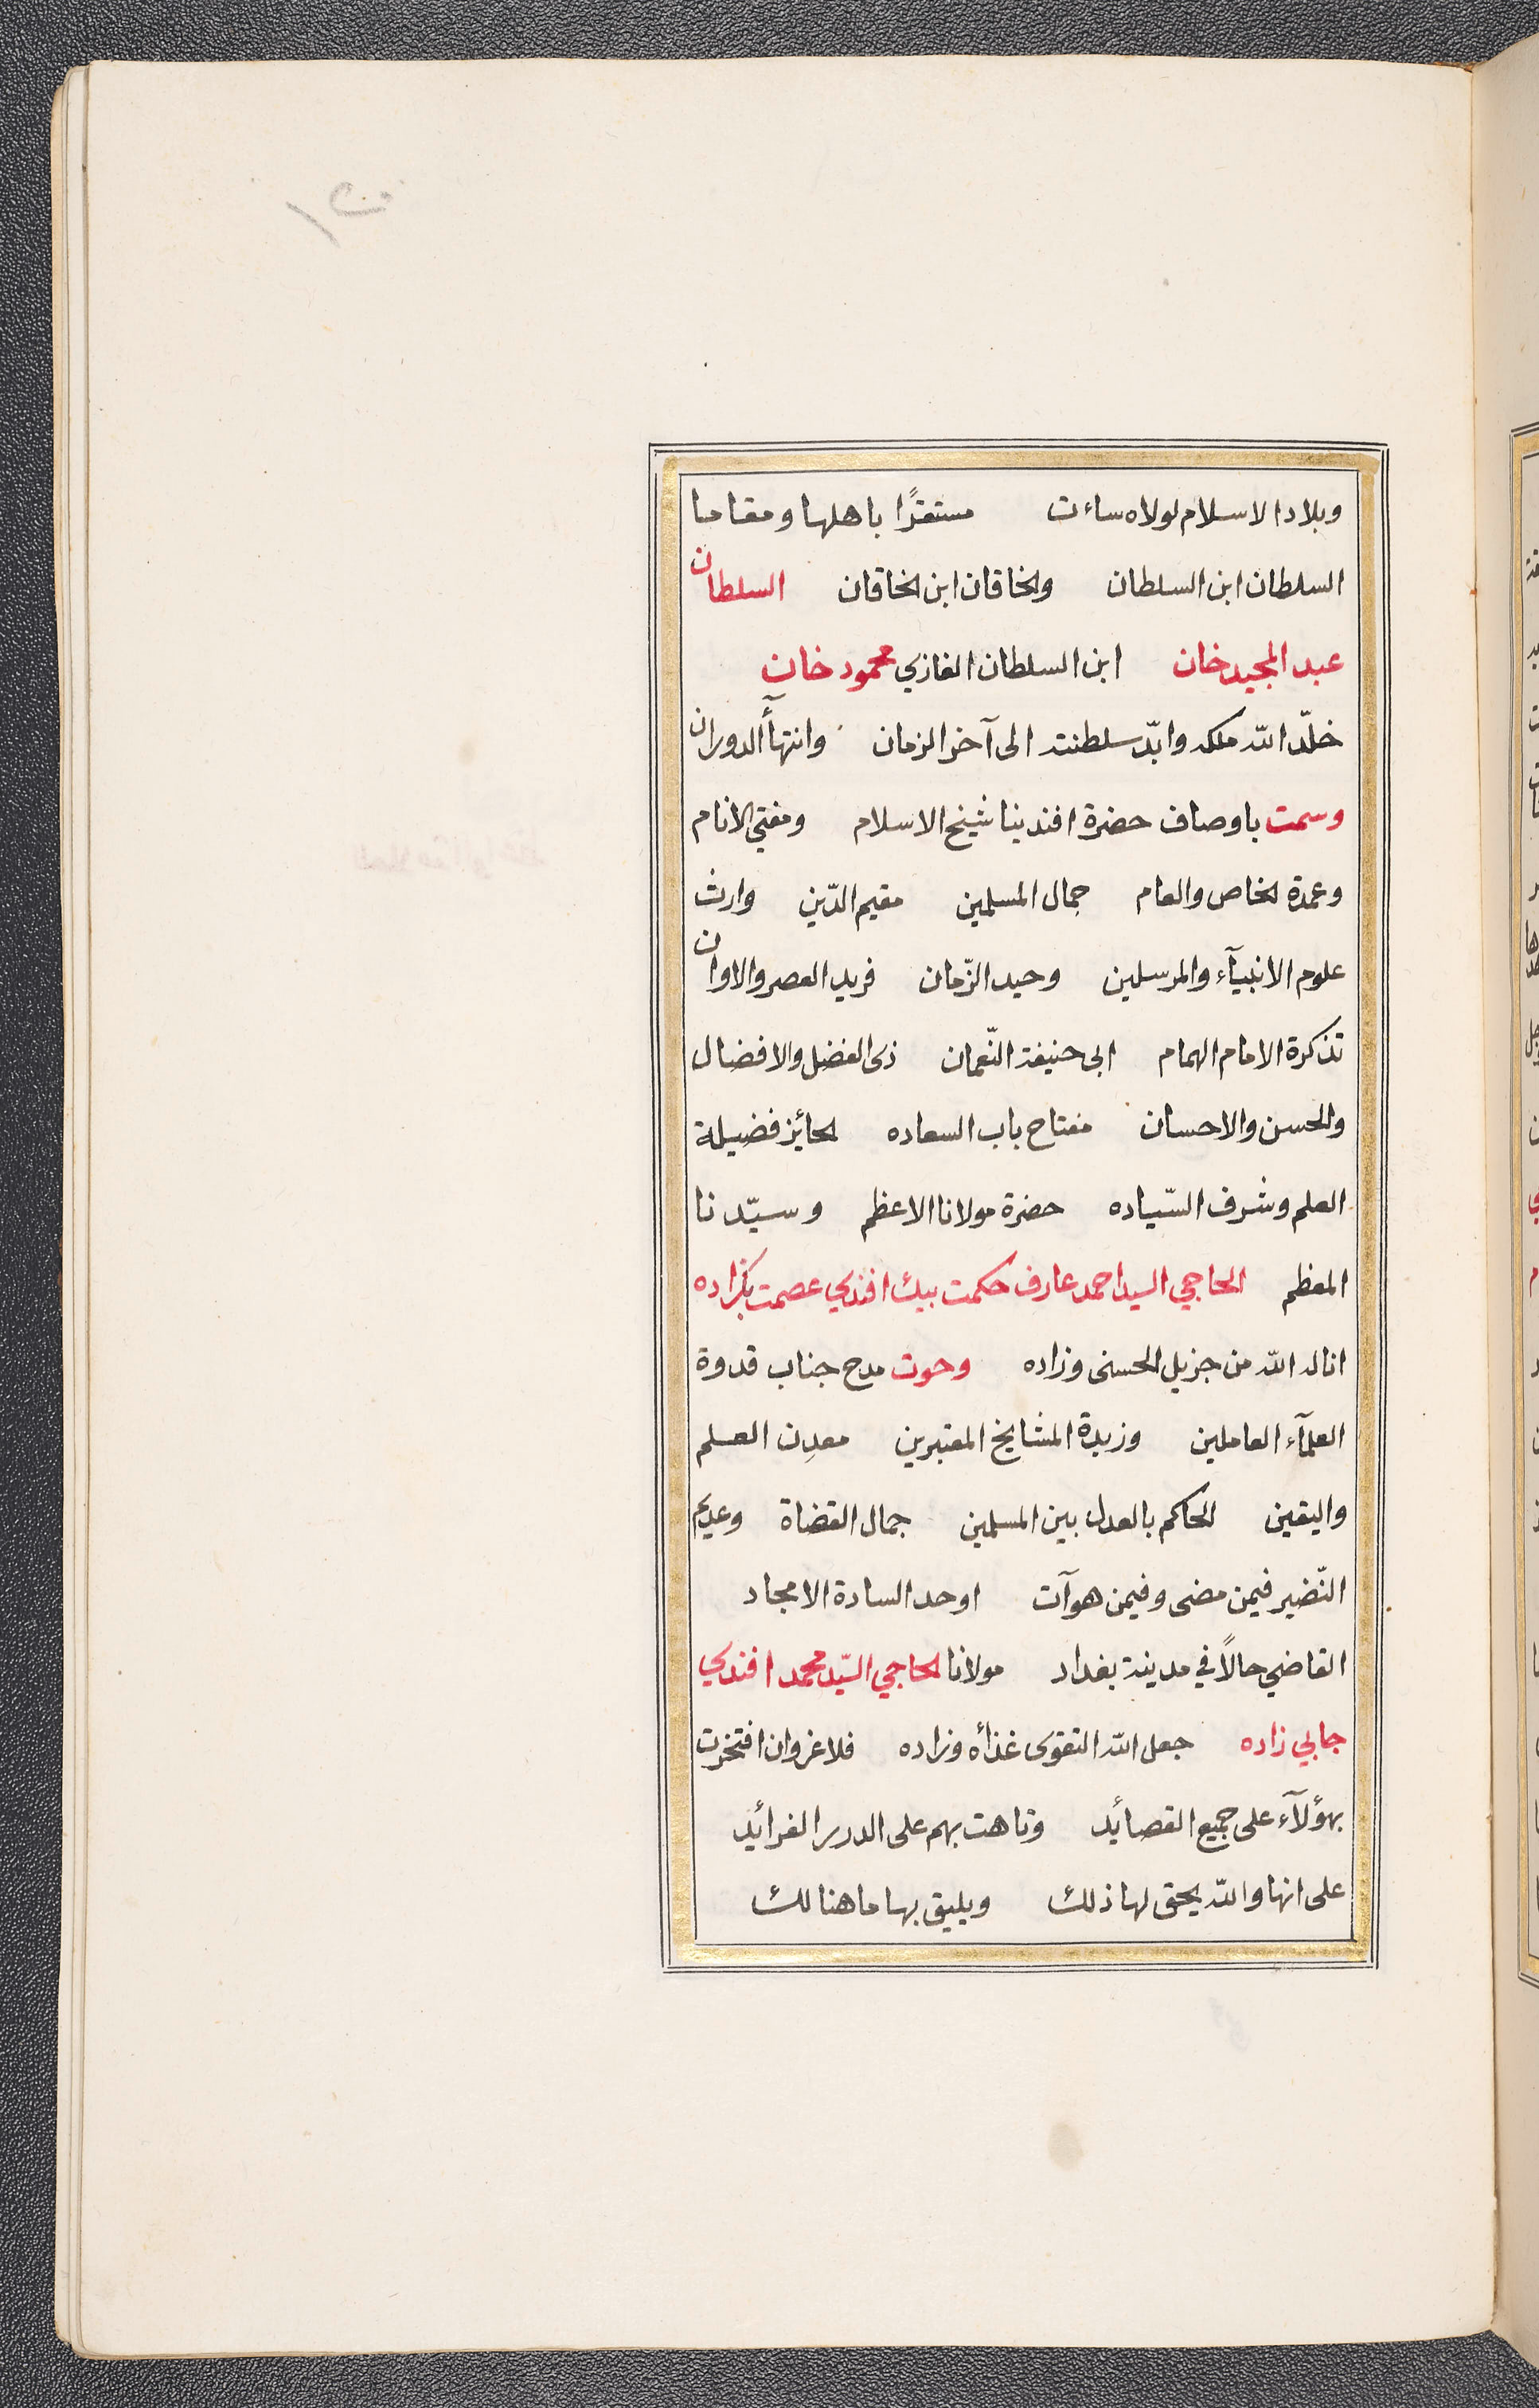 وبلاد الاسلام لولاه ساءت مستقرًا باهلها ومقاما
السلطان ابن السلطان والخاقان ابن الخاقان السلطان
عبد المجيد خان ابن السلطان الغازي محمود خان
خلّد اللّه ملكه وابّد سلطنته الى آخر الزمان وانتهآء الدوران
وسمت باوصاف حضرة افندينا شيخ الاسلام ومفتي الانام
وعمدة الخاص والعام جمال المسلمين مقيم الدّين وارث
علوم الانبيآء والمرسلين وحيد الزّمان فريد العصر والاوان
تذكرة الامام الهمام ابى حنيفة النّعمان ذى الفضل والافضال
والحسن والاحسان مفتاح باب السعاده الحائز فضيلة
العلم وشرف السّياده حضرة مولانا الاعظم وسيّدنا
المعظم الحاجي السيد احمد عارف حكمت بيك افندي عصمت بكزاده
اناله اللّه من جزيل الحسنى وزاده وحوت مدح جناب قدوة
العلمآء العاملين وزبدة المشايخ المعتبرين معدِن العلم
واليقين الحاكم بالعدل بين المسلمين جمال القضاة وعديم
النّضير فيمن مضى وفيمن هو آت اوحد السادة الامجاد
القاضي حالاً في مدينة بغداد مولانا الحاجي السيّد محمد افندي
جابي زاده جعل اللّه التقوى غذاه وزاده فلا غرو ان افتخرت
بهؤلآء على جميع القصائد وتاهت بهم على الدرر الفرائد
على انها واللّه يحق لها ذلك ويليق بها ما هنالك